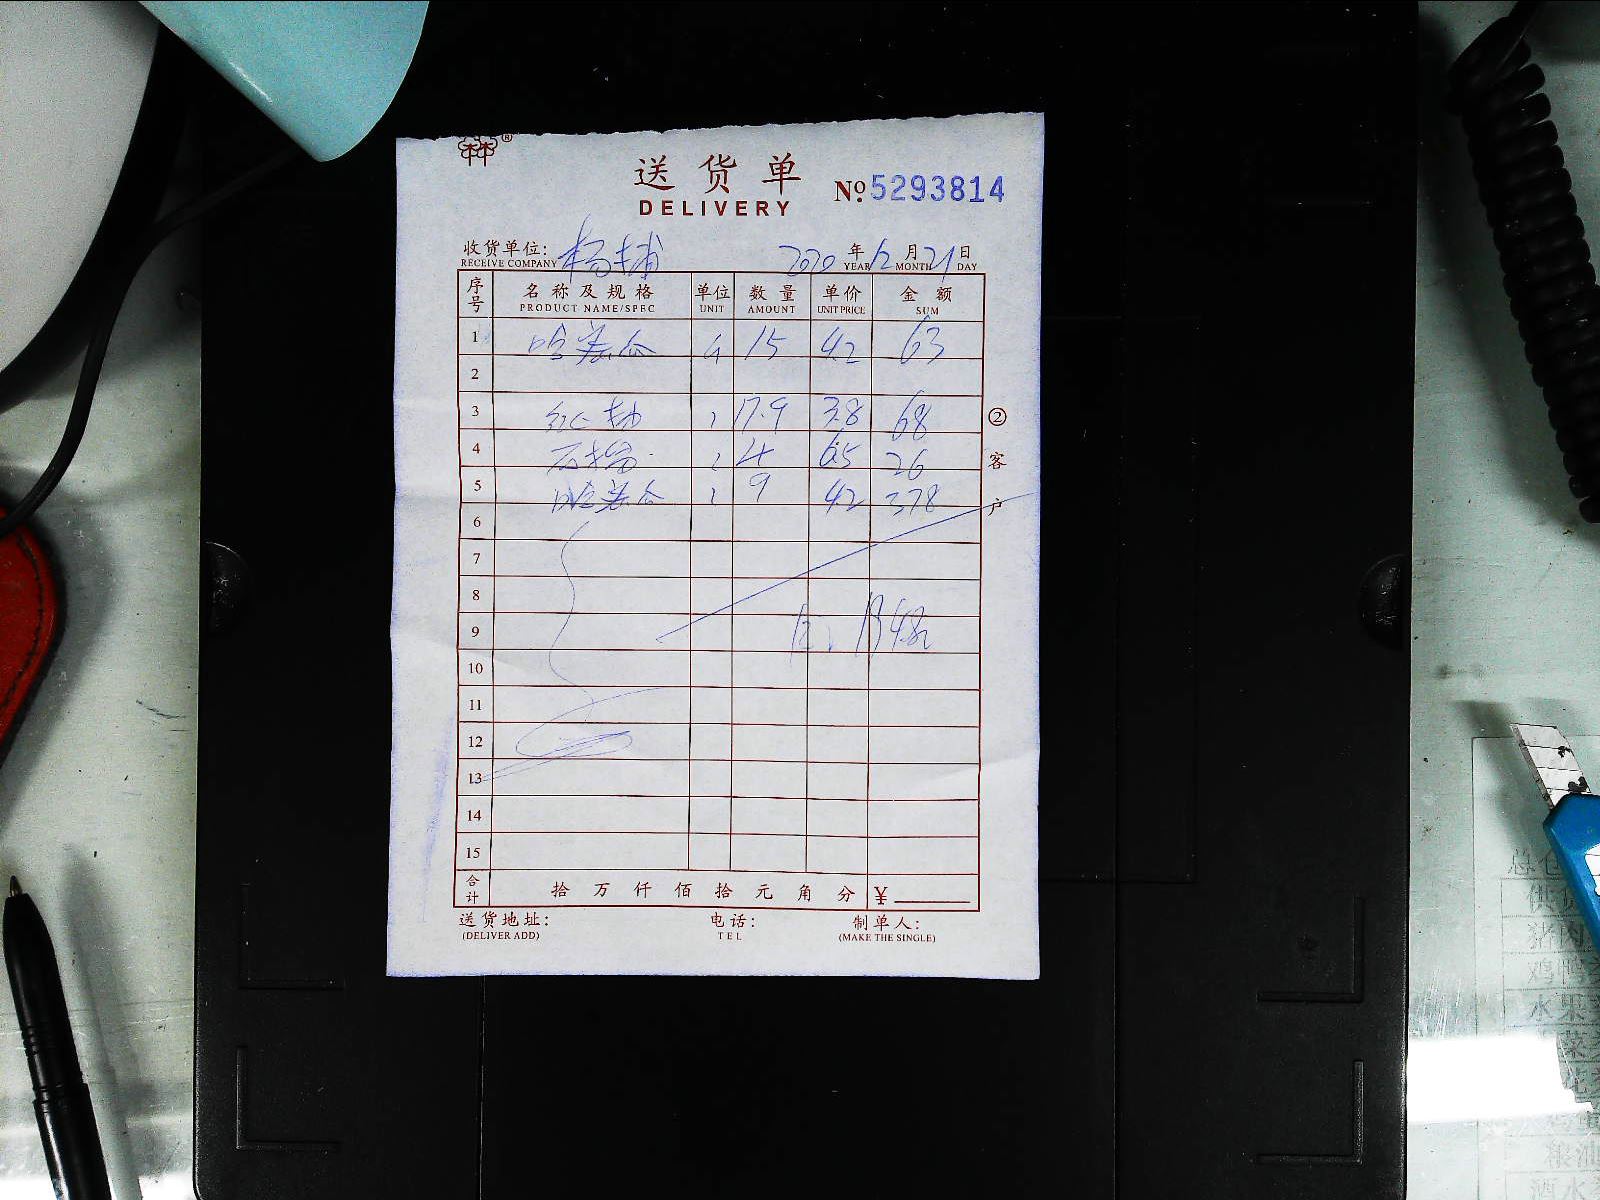 送货单
DELIVERY
№ 5293814
收货单位: 杨埔 2020 年 12 月 21 日
RECEIVE COMPANY YEAR MONTH DAY
序号 名称及规格 单位 数量 单价 金额
PRODUCT NAME/SPEC UNIT AMOUNT UNIT PRICE SUM
1 哈密瓜 斤 15 4.2 63
2
3 红柚 17.9 3.8 68
4 石榴 4 6.5 26
5 哈密瓜 9 4.2 37.8
6
7
8
9
10
11
12
13
14
15
② 客户
合计 拾 万 仟 佰 拾 元 角 分 ¥
送货地址: 电话: 制单人:
(DELIVER ADD) TEL (MAKE THE SINGLE)
水果